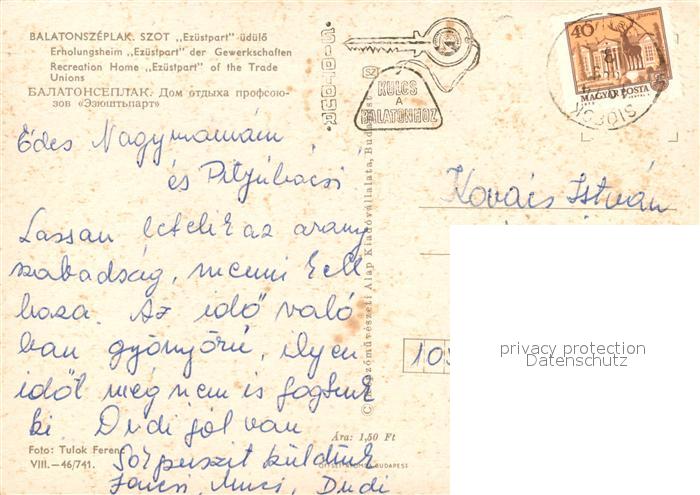 BALATONSZÉPLAK. SZOT „Ezüstpart" üdülő
Erholungsheim „Ezüstpart" der Gewerkschaften
Recreation Home „Ezüstpart" of the Trade
Unions
БАЛАТОНСЕПЛАК. Дом отдыха профсою-
зов «Эзюштьпарт»
SIOTOUR
KULCS
A
BALATONHOZ
40
MAGYAR POSTA
SIÓFOK
Édes Nagymamám
és Pityubácsi
Lassan letelik az arany
szabadság, menni kell
haza. Az idő való
ban gyönyörű, ilyen
időt még nem is fogtunk
ki. Dudi jól van
Sok puszit küldünk
Jancsi, Muci, Dudi
Foto: Tulok Ferenc
VIII.—46/741.
Ára: 1,50 Ft
BUDAPEST
Képzőművészeti Alap Kiadóvállalata, Budapest
Kovács István
105
privacy protection
Datenschutz